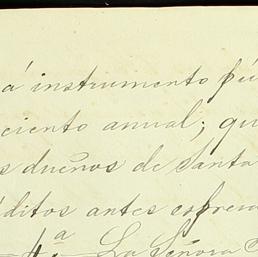 á instrumento pú
ciento anual; qu
s dueños de Santa
ditos antes espresa
4ª La Señora